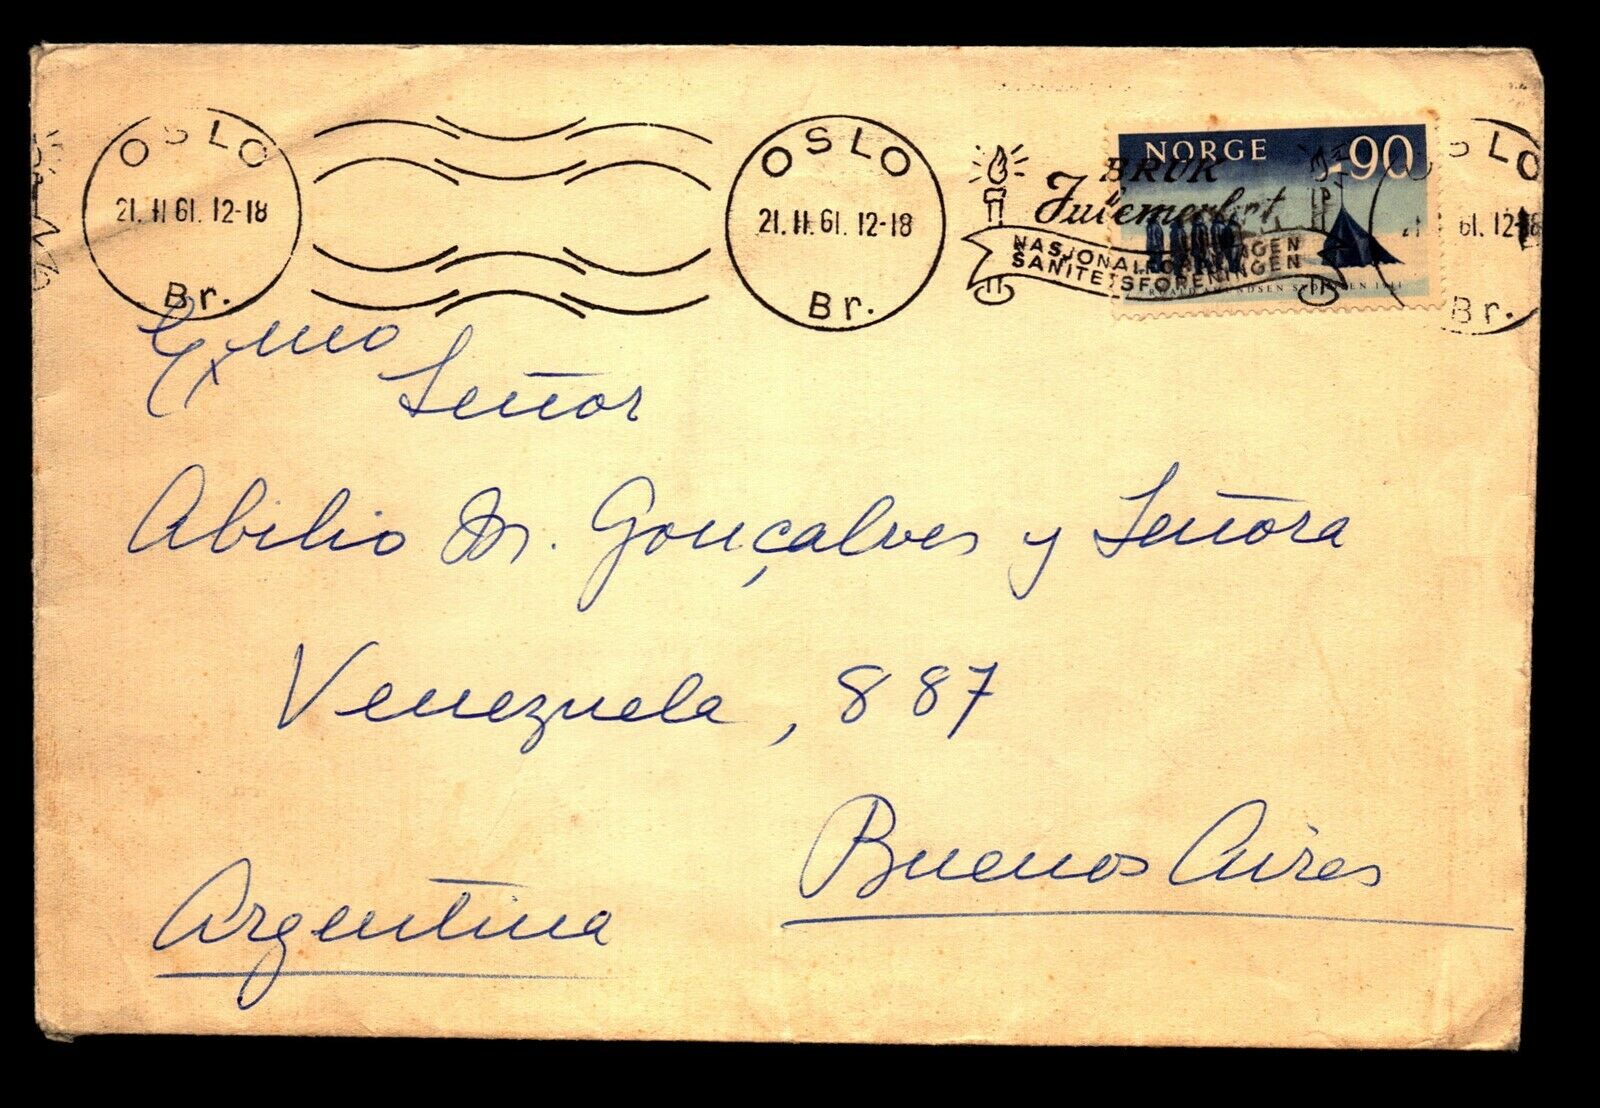 OSLO
21.11.61.12-18
Br.
OSLO
21.11.61.12-18
Br.
BRUK
Julemerket
NASJONALFORENINGEN
SANITETSFORENINGEN
NORGE 90
ROALD AMUNDSEN SYDPOLEN 1911
SLO
61.12-18
Br.
Exmo
Señor
Abilio M. Gonçalves y Señora
Venezuela, 887
Buenos Aires
Argentina